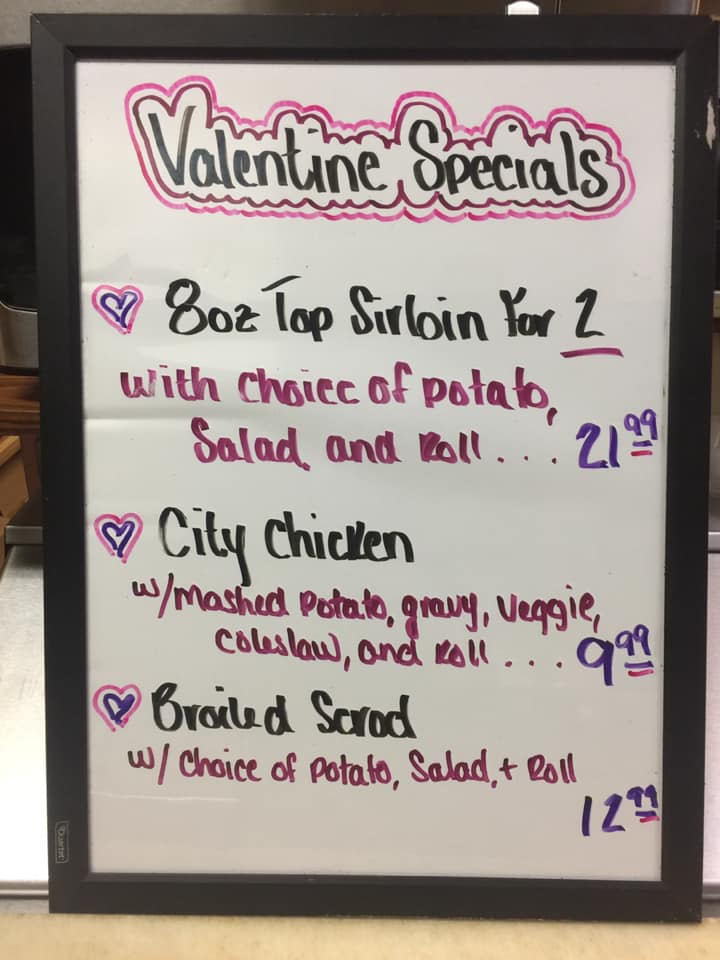 Valentine Specials
8oz Top Sirloin For 2
with choice of potato,
Salad, and Roll . . . 21.99
City Chicken
w/mashed potato, gravy, veggie,
coleslaw, and Roll . . . 9.99
Broiled Scrod
w/ choice of potato, Salad, + Roll
12.99
QUARTET